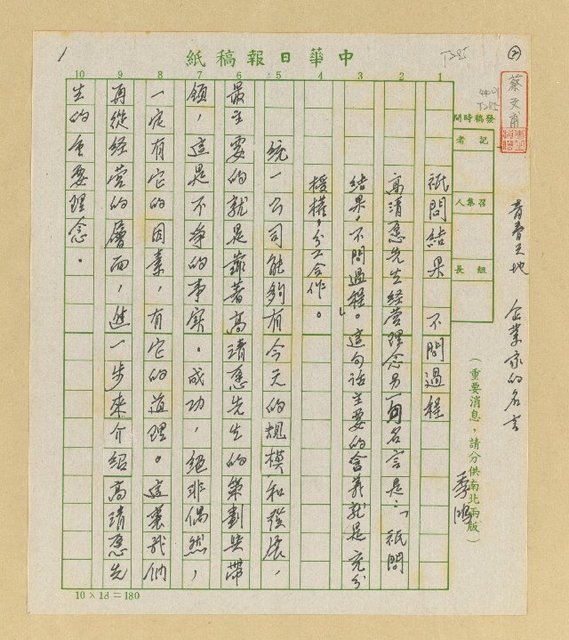 中華日報稿紙
1
T385
蔡文甫
發稿時間
記者
召集人
組長
(重要消息,請分供南北兩版)
青青天地 企業家的名言
季鴻
1
2
3
4
5
6
7
8
9
10
祇問結果 不問過程
高清愿先生經營理念另一句名言是:「祇問
結果,不問過程。」這句話主要的含義就是充分
授權,分工合作。
統一公司能夠有今天的規模和發展,
最主要的就是靠著高清愿先生的策劃與帶
領,這是不爭的事實。成功,絕非偶然,
一定有它的因素,有它的道理。這裏我們
再從經營的層面,進一步來介紹高清愿先
生的重要理念。
10×18=180